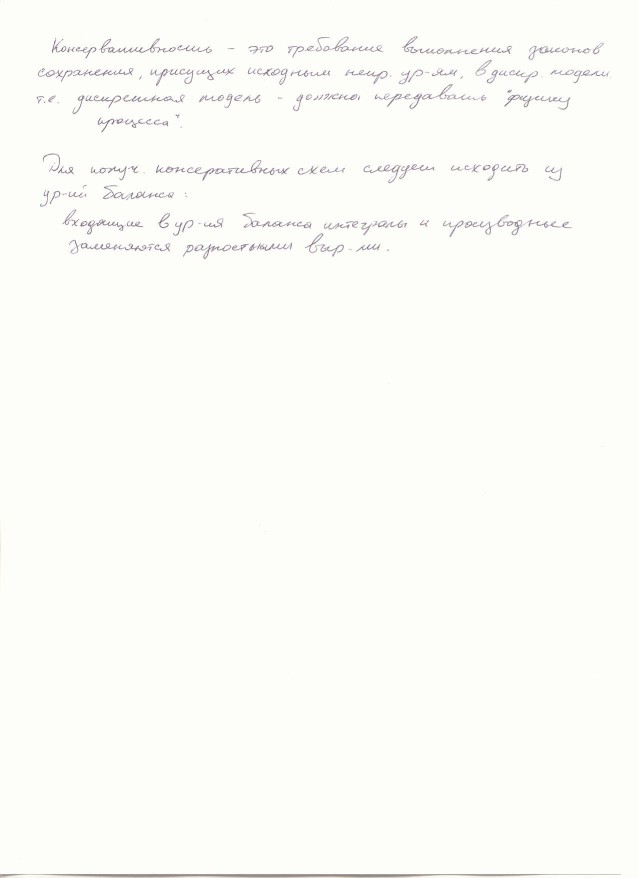 Консервативность – это требование выполнения законов
сохранения, присущих исходным непр. ур-ям, в дискр. модели.
т.е. дискретная модель – должна передавать "физику
процесса".
Для получ. консеративных схем следует исходить из
ур-ий баланса:
входящие в ур-ия баланса интегралы и производные
заменяются разностными выр-ми.